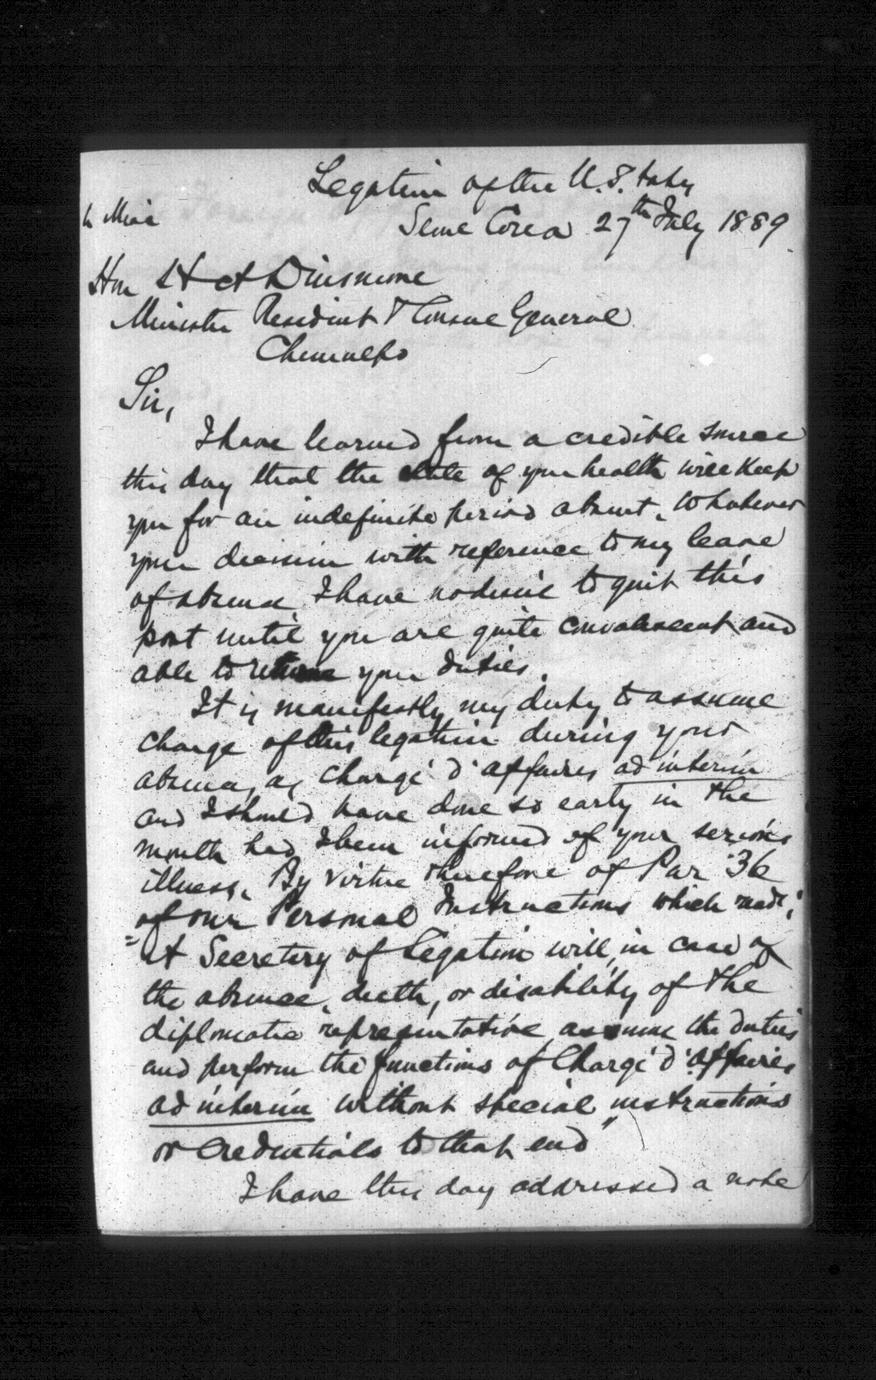 Legation of the U.S.
Seoul Corea 27th July 1889
Hon H A Dinsmore
Minister Resident & Consul General
Chemulpo
Sir,
I have learned from a credible source
this day that the state of your health will keep
you for an indefinite period absent. Whatever
your decision with reference to my leave
of absence I have no desire to quit this
post until you are quite convalescent and
able to your duties.
It is manifestly my duty to assume
charge of this legation during your
absence, as Chargé d'affaires ad interim
and I should have done so early in the
month had I been informed of your serious
illness. By virtue therefore of Par 36
of our Personal Instructions which reads;
"A Secretary of Legation will, in case of
the absence, death, or disability of the
diplomatic representative, assume the duties
and perform the functions of Chargé d'affaires
ad interim without special instructions
or credentials to that end"
I have this day addressed a note